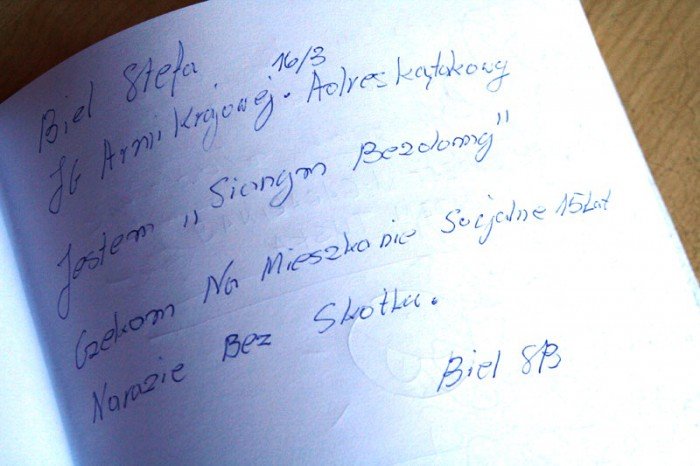 Biel Stefa
JG Armii Krajowej. 16/3 Adres kątakowy
Jestem „Sianym Bezdomy"
Czekam Na Mieszkanie Socjalne 15 Lat
Narazie Bez Skotku.
Biel SB